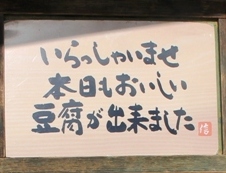 いらっしゃいませ
本日もおいしい
豆腐が出来ました